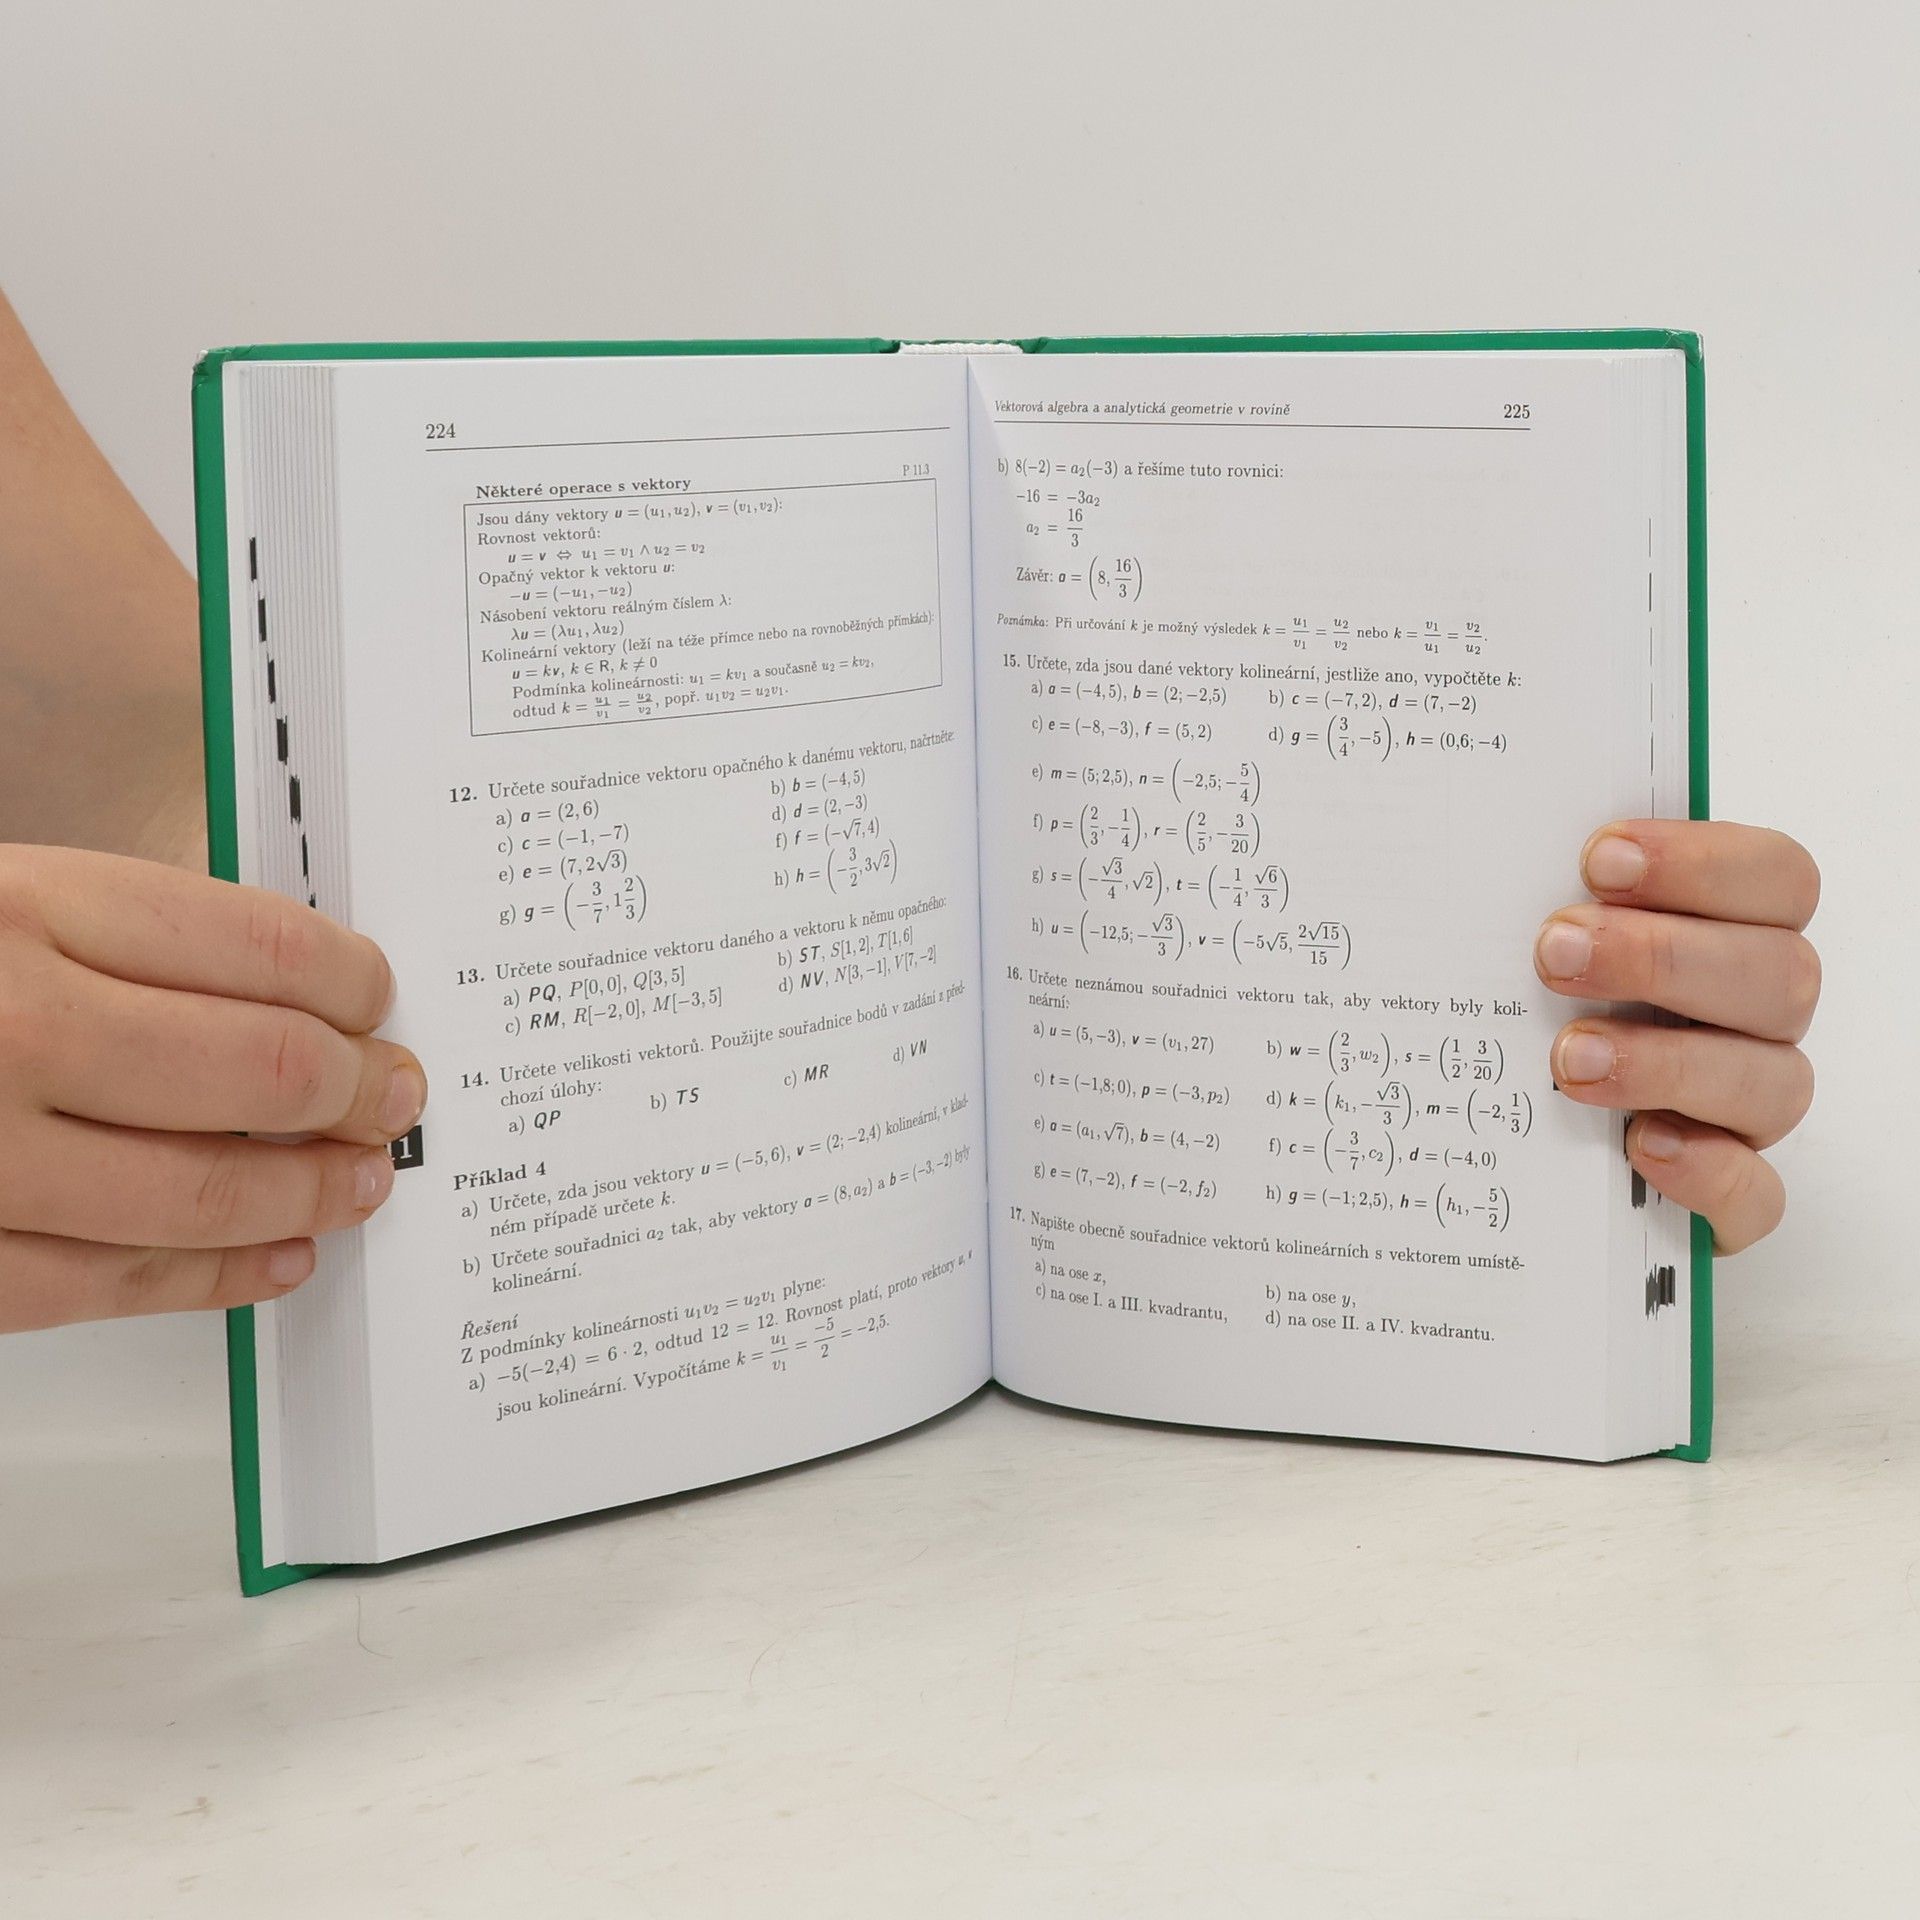 224
P 11.3
Některé operace s vektory
Jsou dány vektory u = (u₁, u₂), v = (v₁, v₂):
Rovnost vektorů:
u = v ⇔ u₁ = v₁ ∧ u₂ = v₂
Opačný vektor k vektoru u:
−u = (−u₁, −u₂)
Násobení vektoru reálným číslem λ:
λu = (λu₁, λu₂)
Kolineární vektory (leží na téže přímce nebo na rovnoběžných přímkách):
u = kv, k ∈ R, k ≠ 0
Podmínka kolineárnosti: u₁ = kv₁ a současně u₂ = kv₂,
odtud k = u₁/v₁ = u₂/v₂, popř. u₁v₂ = u₂v₁.
12. Určete souřadnice vektoru opačného k danému vektoru, načrtněte:
a) a = (2, 6) b) b = (−4, 5)
c) c = (−1, −7) d) d = (2, −3)
e) e = (7, 2√3) f) f = (−√7, 4)
g) g = (−3/7, 1 2/3) h) h = (−3/2, 3√2)
13. Určete souřadnice vektoru daného a vektoru k němu opačného:
a) PQ, P[0, 0], Q[3, 5] b) ST, S[1, 2], T[1, 6]
c) RM, R[−2, 0], M[−3, 5] d) NV, N[3, −1], V[7, −2]
14. Určete velikosti vektorů. Použijte souřadnice bodů v zadání z před-
chozí úlohy:
a) QP b) TS c) MR d) VN
11
Příklad 4
a) Určete, zda jsou vektory u = (−5, 6), v = (2; −2,4) kolineární, v klad-
ném případě určete k.
b) Určete souřadnici a₂ tak, aby vektory a = (8, a₂) a b = (−3, −2) byly
kolineární.
Řešení
Z podmínky kolineárnosti u₁v₂ = u₂v₁ plyne:
a) −5(−2,4) = 6 · 2, odtud 12 = 12. Rovnost platí, proto vektory u, v
jsou kolineární. Vypočítáme k = u₁/v₁ = −5/2 = −2,5.
Vektorová algebra a analytická geometrie v rovině 225
b) 8(−2) = a₂(−3) a řešíme tuto rovnici:
−16 = −3a₂
a₂ = 16/3
Závěr: a = (8, 16/3)
Poznámka: Při určování k je možný výsledek k = u₁/v₁ = u₂/v₂ nebo k = v₁/u₁ = v₂/u₂.
15. Určete, zda jsou dané vektory kolineární, jestliže ano, vypočtěte k:
a) a = (−4, 5), b = (2; −2,5) b) c = (−7, 2), d = (7, −2)
c) e = (−8, −3), f = (5, 2) d) g = (3/4, −5), h = (0,6; −4)
e) m = (5; 2,5), n = (−2,5; −5/4)
f) p = (2/3, −1/4), r = (2/5, −3/20)
g) s = (−√3/4, √2), t = (−1/4, √6/3)
h) u = (−12,5; −√3/3), v = (−5√5, 2√15/15)
16. Určete neznámou souřadnici vektoru tak, aby vektory byly koli-
neární:
a) u = (5, −3), v = (v₁, 27) b) w = (2/3, w₂), s = (1/2, 3/20)
c) t = (−1,8; 0), p = (−3, p₂) d) k = (k₁, −√3/3), m = (−2, 1/3)
e) a = (a₁, √7), b = (4, −2) f) c = (−3/7, c₂), d = (−4, 0)
g) e = (7, −2), f = (−2, f₂) h) g = (−1; 2,5), h = (h₁, −5/2)
17. Napište obecně souřadnice vektorů kolineárních s vektorem umístě-
ným
a) na ose x, b) na ose y,
c) na ose I. a III. kvadrantu, d) na ose II. a IV. kvadrantu.